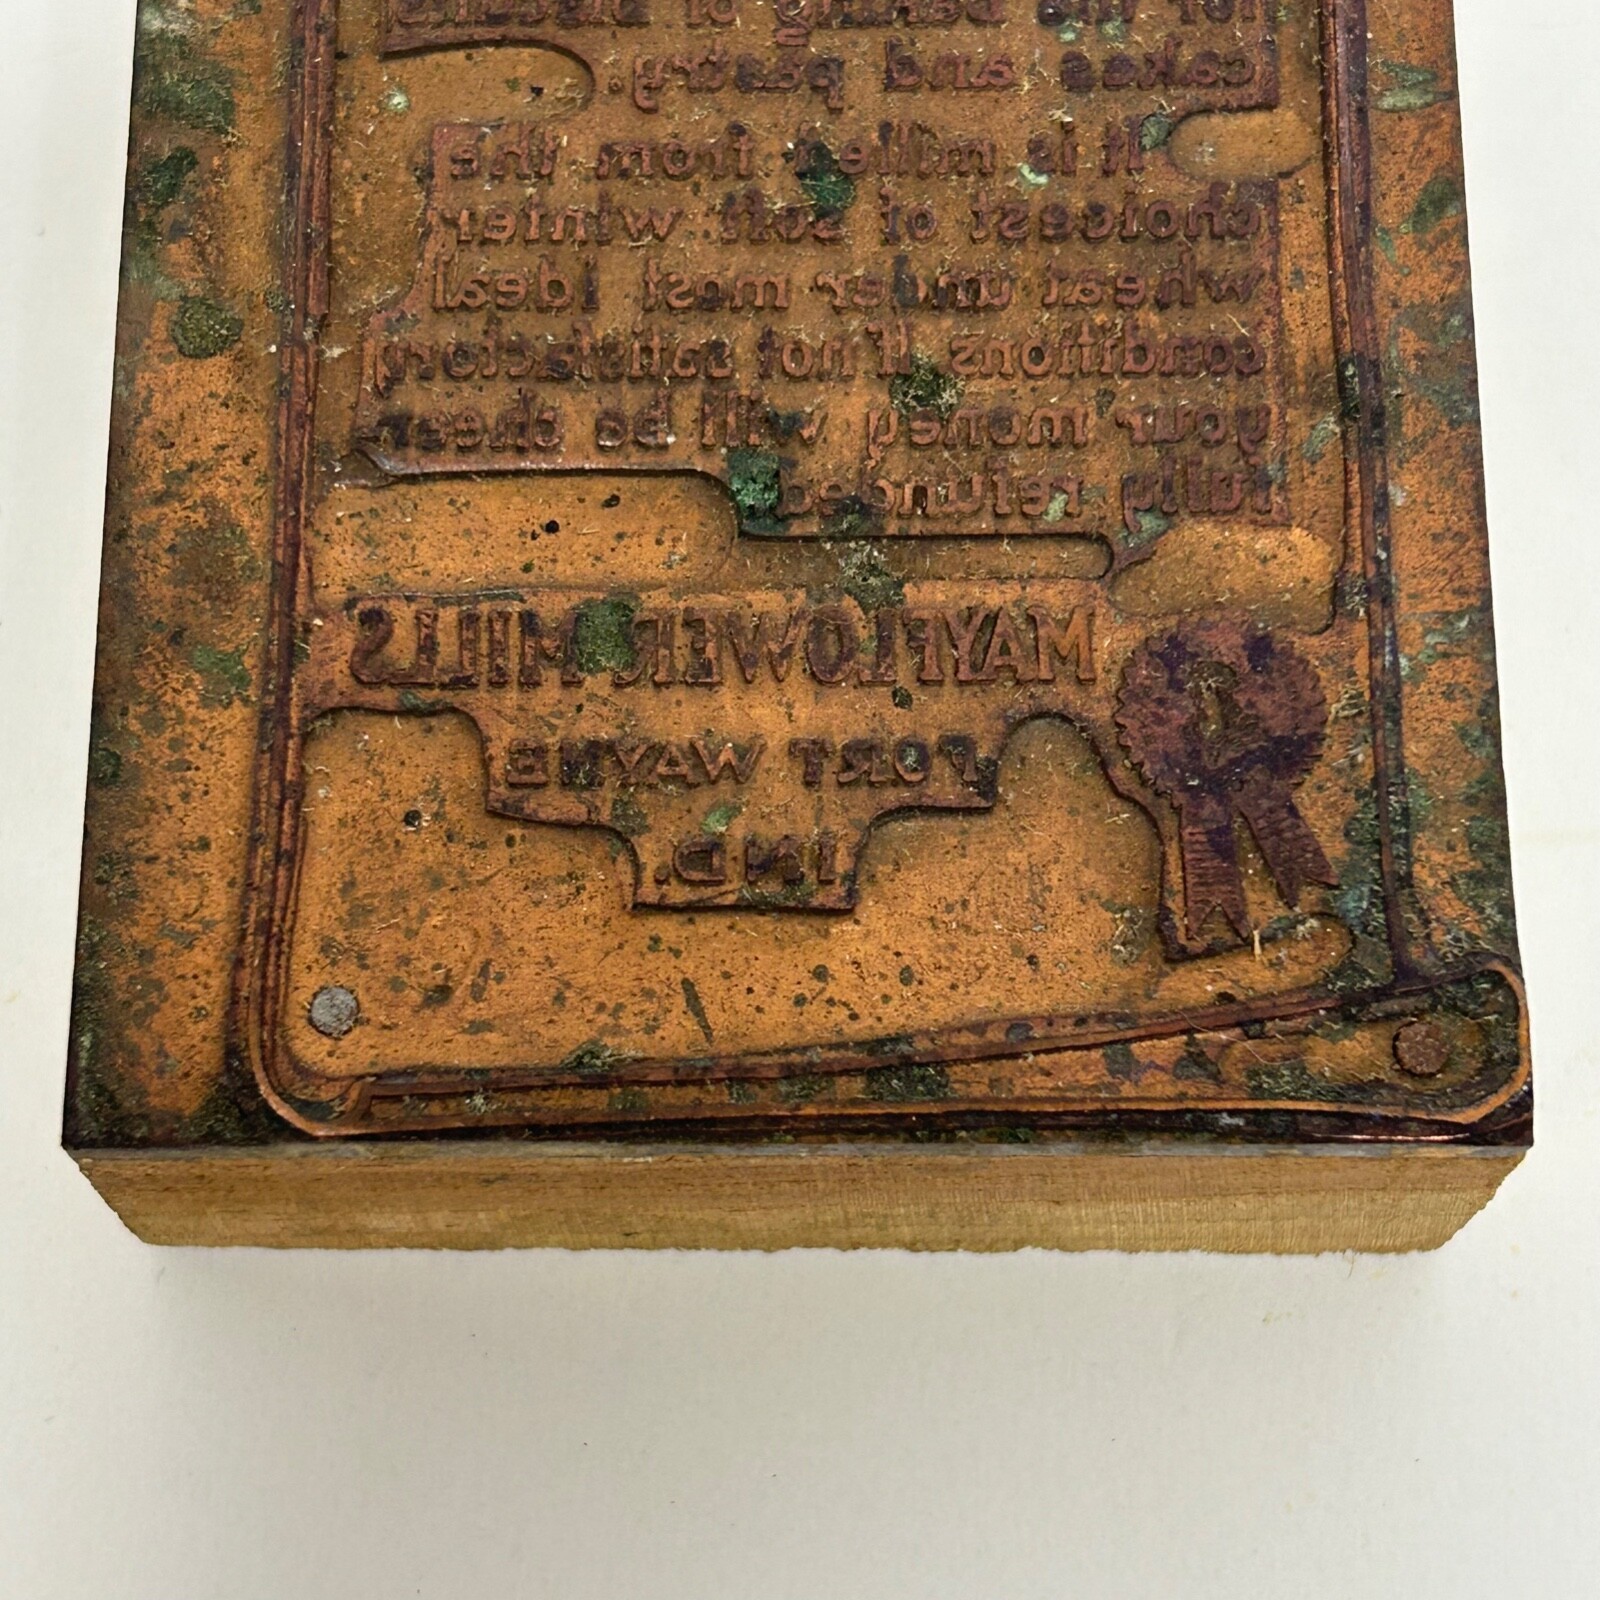 for the baking of biscuits
cakes and pastry.
It is milled from the
choicest of soft winter
wheat under most ideal
conditions If not satisfactory
your money will be cheer
fully refunded
MAYFLOWER MILLS
FORT WAYNE
IND.